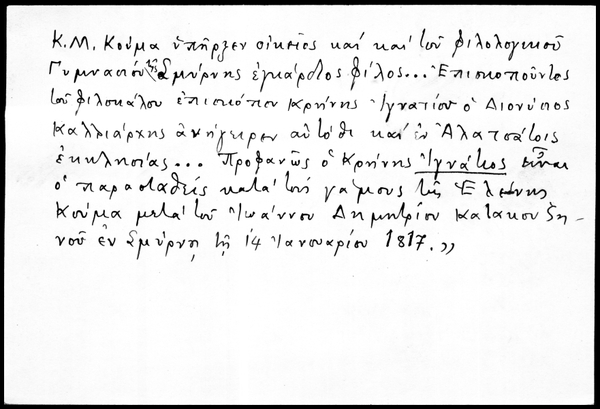 Κ.Μ. Κούμα ὑπῆρξεν οἰκεῖος καί καί τοῦ φιλολογικοῦ
Γυμνασίου τῆς Σμύρνης ἐγκάρδιος φίλος... Ἐπισκοποῦντος
τοῦ φιλοκάλου ἐπισκόπου Κρήνης Ἰγνατίου ὁ Διονύσιος
Καλλιάρχης ἀνήγειρεν αὐτόθι καί ἐν Ἀλατσάτοις
ἐκκλησίας... Προφανῶς ὁ Κρήνης Ἰγνάτιος εἶναι
ὁ παρασταθείς κατά τούς γάμους τῆς Ἑλένης
Κούμα μετά τοῦ Ἰωάννου Δημητρίου Κατακουζη-
νοῦ ἐν Σμύρνῃ τῇ 14 Ἰανουαρίου 1817.»